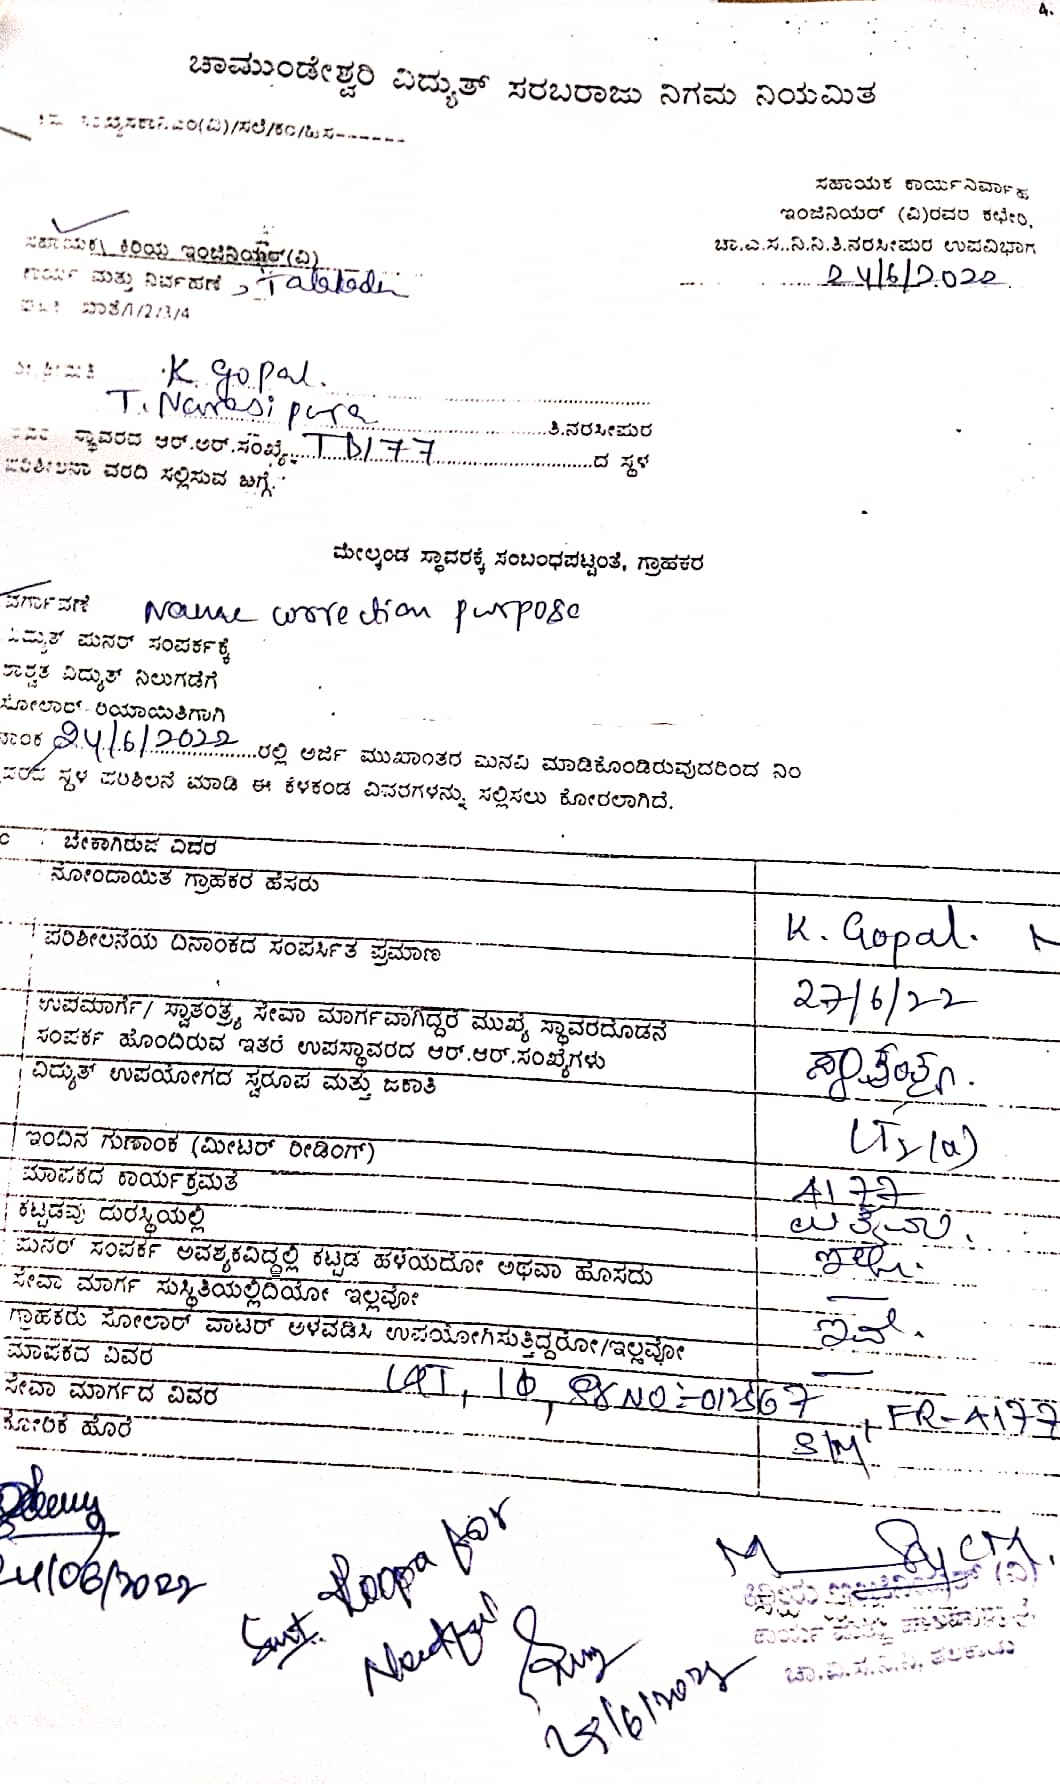 4.
ಚಾಮುಂಡೇಶ್ವರಿ ವಿದ್ಯುತ್ ಸರಬರಾಜು ನಿಗಮ ನಿಯಮಿತ
ಸಹಾಯಕ ಕಾರ್ಯನಿರ್ವಾಹ
ಇಂಜಿನಿಯರ್ (ವಿ)ರವರ ಕಛೇರಿ,
ಚಾ.ವಿ.ಸ.ನಿ.ನಿ.ತಿ.ನರಸೀಪುರ ಉಪವಿಭಾಗ
24/6/2022
ಸಹಾಯಕ\ ಕಿರಿಯ ಇಂಜಿನಿಯರ್(ವಿ)
ಕಾರ್ಯ ಮತ್ತು ನಿರ್ವಹಣೆ , Talakadu
ಖಾತೆ/1/2/3/4
K. Gopal.
T. Narasipura ತಿ.ನರಸೀಪುರ
ಸ್ಥಾವರದ ಆರ್.ಆರ್.ಸಂಖ್ಯೆ: TD177 ದ ಸ್ಥಳ
ಪರಿಶೀಲನಾ ವರದಿ ಸಲ್ಲಿಸುವ ಬಗ್ಗೆ.
ಮೇಲ್ಕಂಡ ಸ್ಥಾವರಕ್ಕೆ ಸಂಬಂಧಪಟ್ಟಂತೆ, ಗ್ರಾಹಕರ
ವರ್ಗಾವಣೆ Name correction purpose
ವಿದ್ಯುತ್ ಪುನರ್ ಸಂಪರ್ಕಕ್ಕೆ
ಶಾಶ್ವತ ವಿದ್ಯುತ್ ನಿಲುಗಡೆಗೆ
ಸೋಲಾರ್ ರಿಯಾಯಿತಿಗಾಗಿ
ನಾಂಕ 24/6/2022 ರಲ್ಲಿ ಅರ್ಜಿ ಮುಖಾಂತರ ಮನವಿ ಮಾಡಿಕೊಂಡಿರುವುದರಿಂದ ನಿಂ
ಸ್ಥಳ ಪರಿಶೀಲನೆ ಮಾಡಿ ಈ ಕೆಳಕಂಡ ವಿವರಗಳನ್ನು ಸಲ್ಲಿಸಲು ಕೋರಲಾಗಿದೆ.
ಬೇಕಾಗಿರುವ ವಿವರ
ನೋಂದಾಯಿತ ಗ್ರಾಹಕರ ಹೆಸರು K. Gopal.
ಪರಿಶೀಲನೆಯ ದಿನಾಂಕದ ಸಂಪರ್ಕಿತ ಪ್ರಮಾಣ 27/6/22
ಉಪಮಾರ್ಗ/ ಸ್ವಾತಂತ್ರ್ಯ ಸೇವಾ ಮಾರ್ಗವಾಗಿದ್ದರೆ ಮುಖ್ಯ ಸ್ಥಾವರದೊಡನೆ
ಸಂಪರ್ಕ ಹೊಂದಿರುವ ಇತರೆ ಉಪಸ್ಥಾವರದ ಆರ್.ಆರ್.ಸಂಖ್ಯೆಗಳು
ವಿದ್ಯುತ್ ಉಪಯೋಗದ ಸ್ವರೂಪ ಮತ್ತು ಜಕಾತಿ
ಇಂದಿನ ಗುಣಾಂಕ (ಮೀಟರ್ ರೀಡಿಂಗ್) 4177
ಮಾಪಕದ ಕಾರ್ಯಕ್ರಮತೆ
ಕಟ್ಟಡವು ದುರಸ್ಥಿಯಲ್ಲಿ ಇಲ್ಲ.
ಪುನರ್ ಸಂಪರ್ಕ ಅವಶ್ಯಕವಿದ್ದಲ್ಲಿ ಕಟ್ಟಡ ಹಳೆಯದೋ ಅಥವಾ ಹೊಸದು
ಸೇವಾ ಮಾರ್ಗ ಸುಸ್ಥಿತಿಯಲ್ಲಿದಿಯೋ ಇಲ್ಲವೋ ಇದೆ.
ಗ್ರಾಹಕರು ಸೋಲಾರ್ ವಾಟರ್ ಅಳವಡಿಸಿ ಉಪಯೋಗಿಸುತ್ತಿದ್ದರೋ/ಇಲ್ಲವೋ
ಮಾಪಕದ ವಿವರ
ಸೇವಾ ಮಾರ್ಗದ ವಿವರ L&T, 1Φ, NO:-012567, FR-4177
ಕೋರಿಕೆ ಹೊರೆ S/M
24/06/2022
Smt. Roopa for
ಕಾರ್ಯ ಮತ್ತು ಪಾಲನಾ
ಚಾ.ವಿ.ಸ.ನಿ.ನಿ, ತಲಕಾಡು